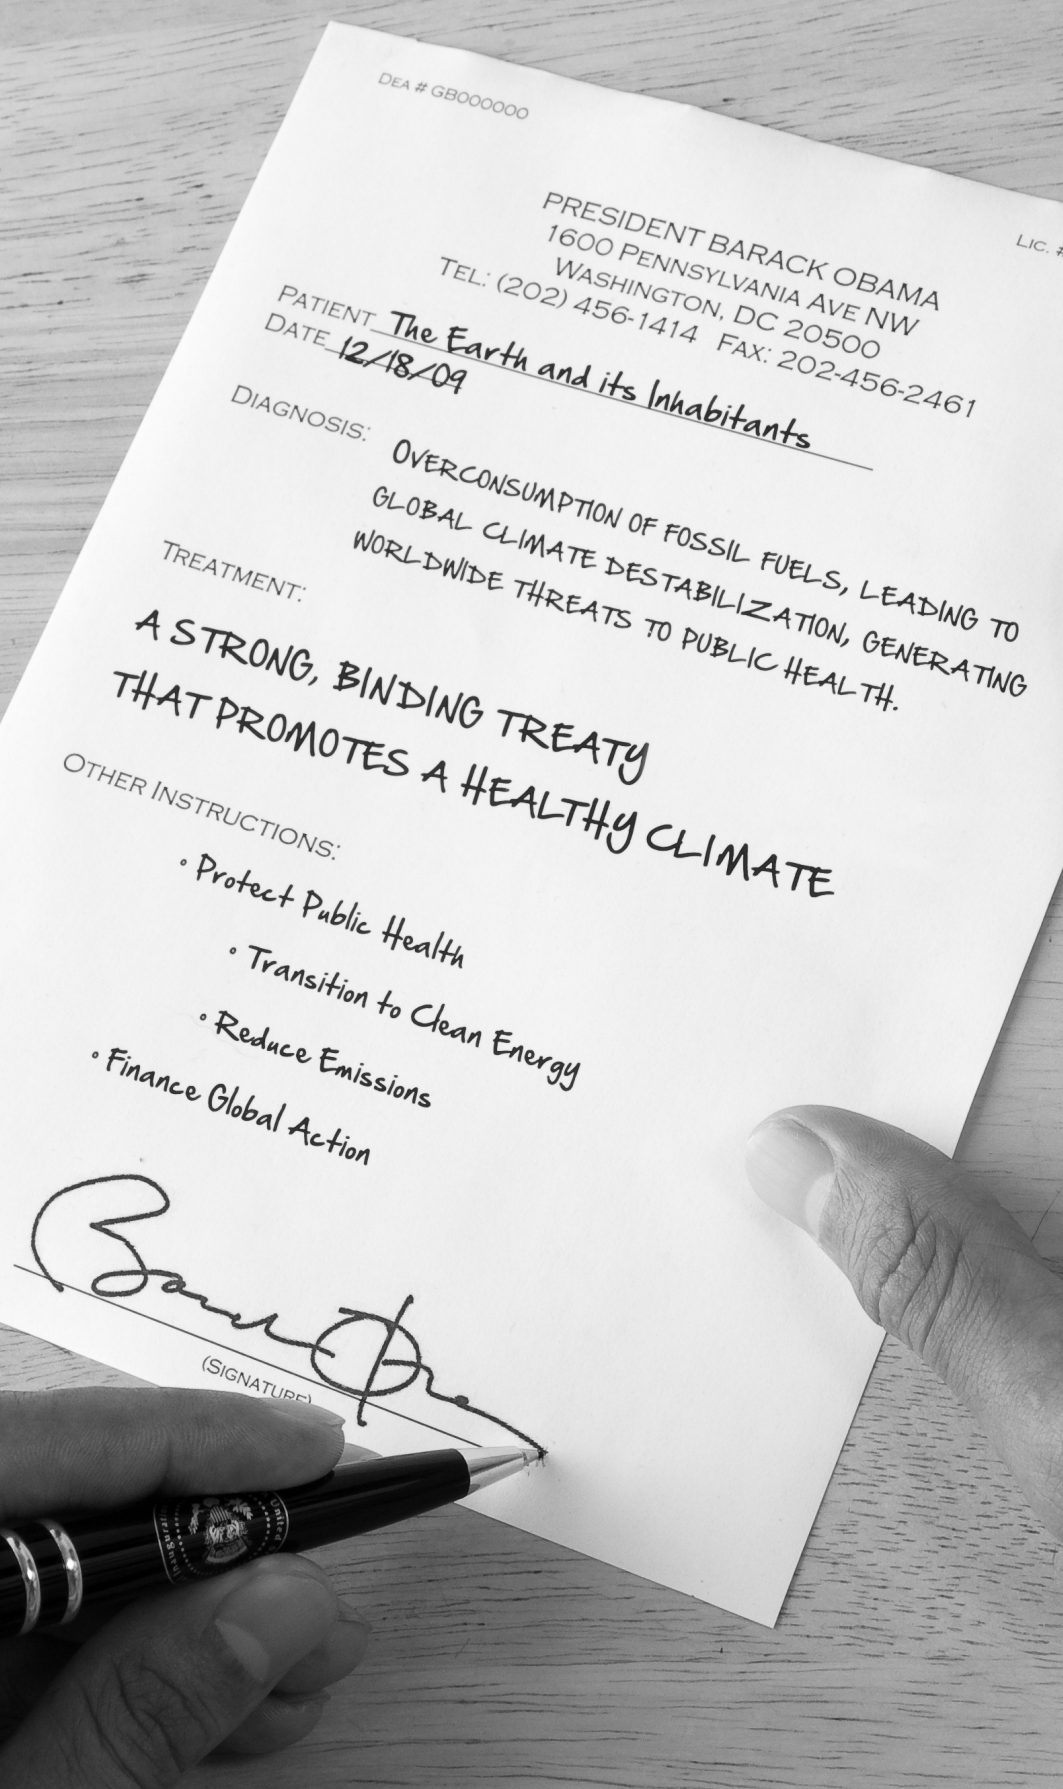 DEA # GB000000
LIC. #
PRESIDENT BARACK OBAMA
1600 PENNSYLVANIA AVE NW
WASHINGTON, DC 20500
TEL: (202) 456-1414 FAX: 202-456-2461
PATIENT The Earth and its Inhabitants
DATE 12/18/09
DIAGNOSIS:
OVERCONSUMPTION OF FOSSIL FUELS, LEADING TO
GLOBAL CLIMATE DESTABILIZATION, GENERATING
WORLDWIDE THREATS TO PUBLIC HEALTH.
TREATMENT:
A STRONG, BINDING TREATY
THAT PROMOTES A HEALTHY CLIMATE
OTHER INSTRUCTIONS:
• Protect Public Health
• Transition to Clean Energy
• Reduce Emissions
• Finance Global Action
(SIGNATURE)
United
Inaugura